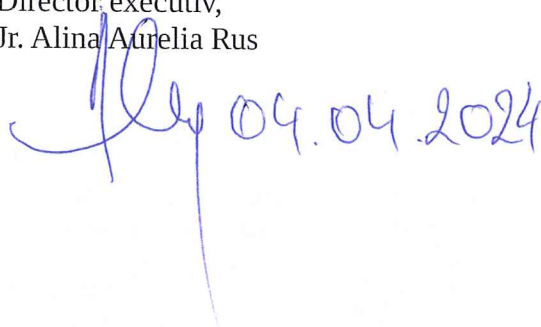 Director executiv,
Jr. Alina Aurelia Rus
04.04.2024